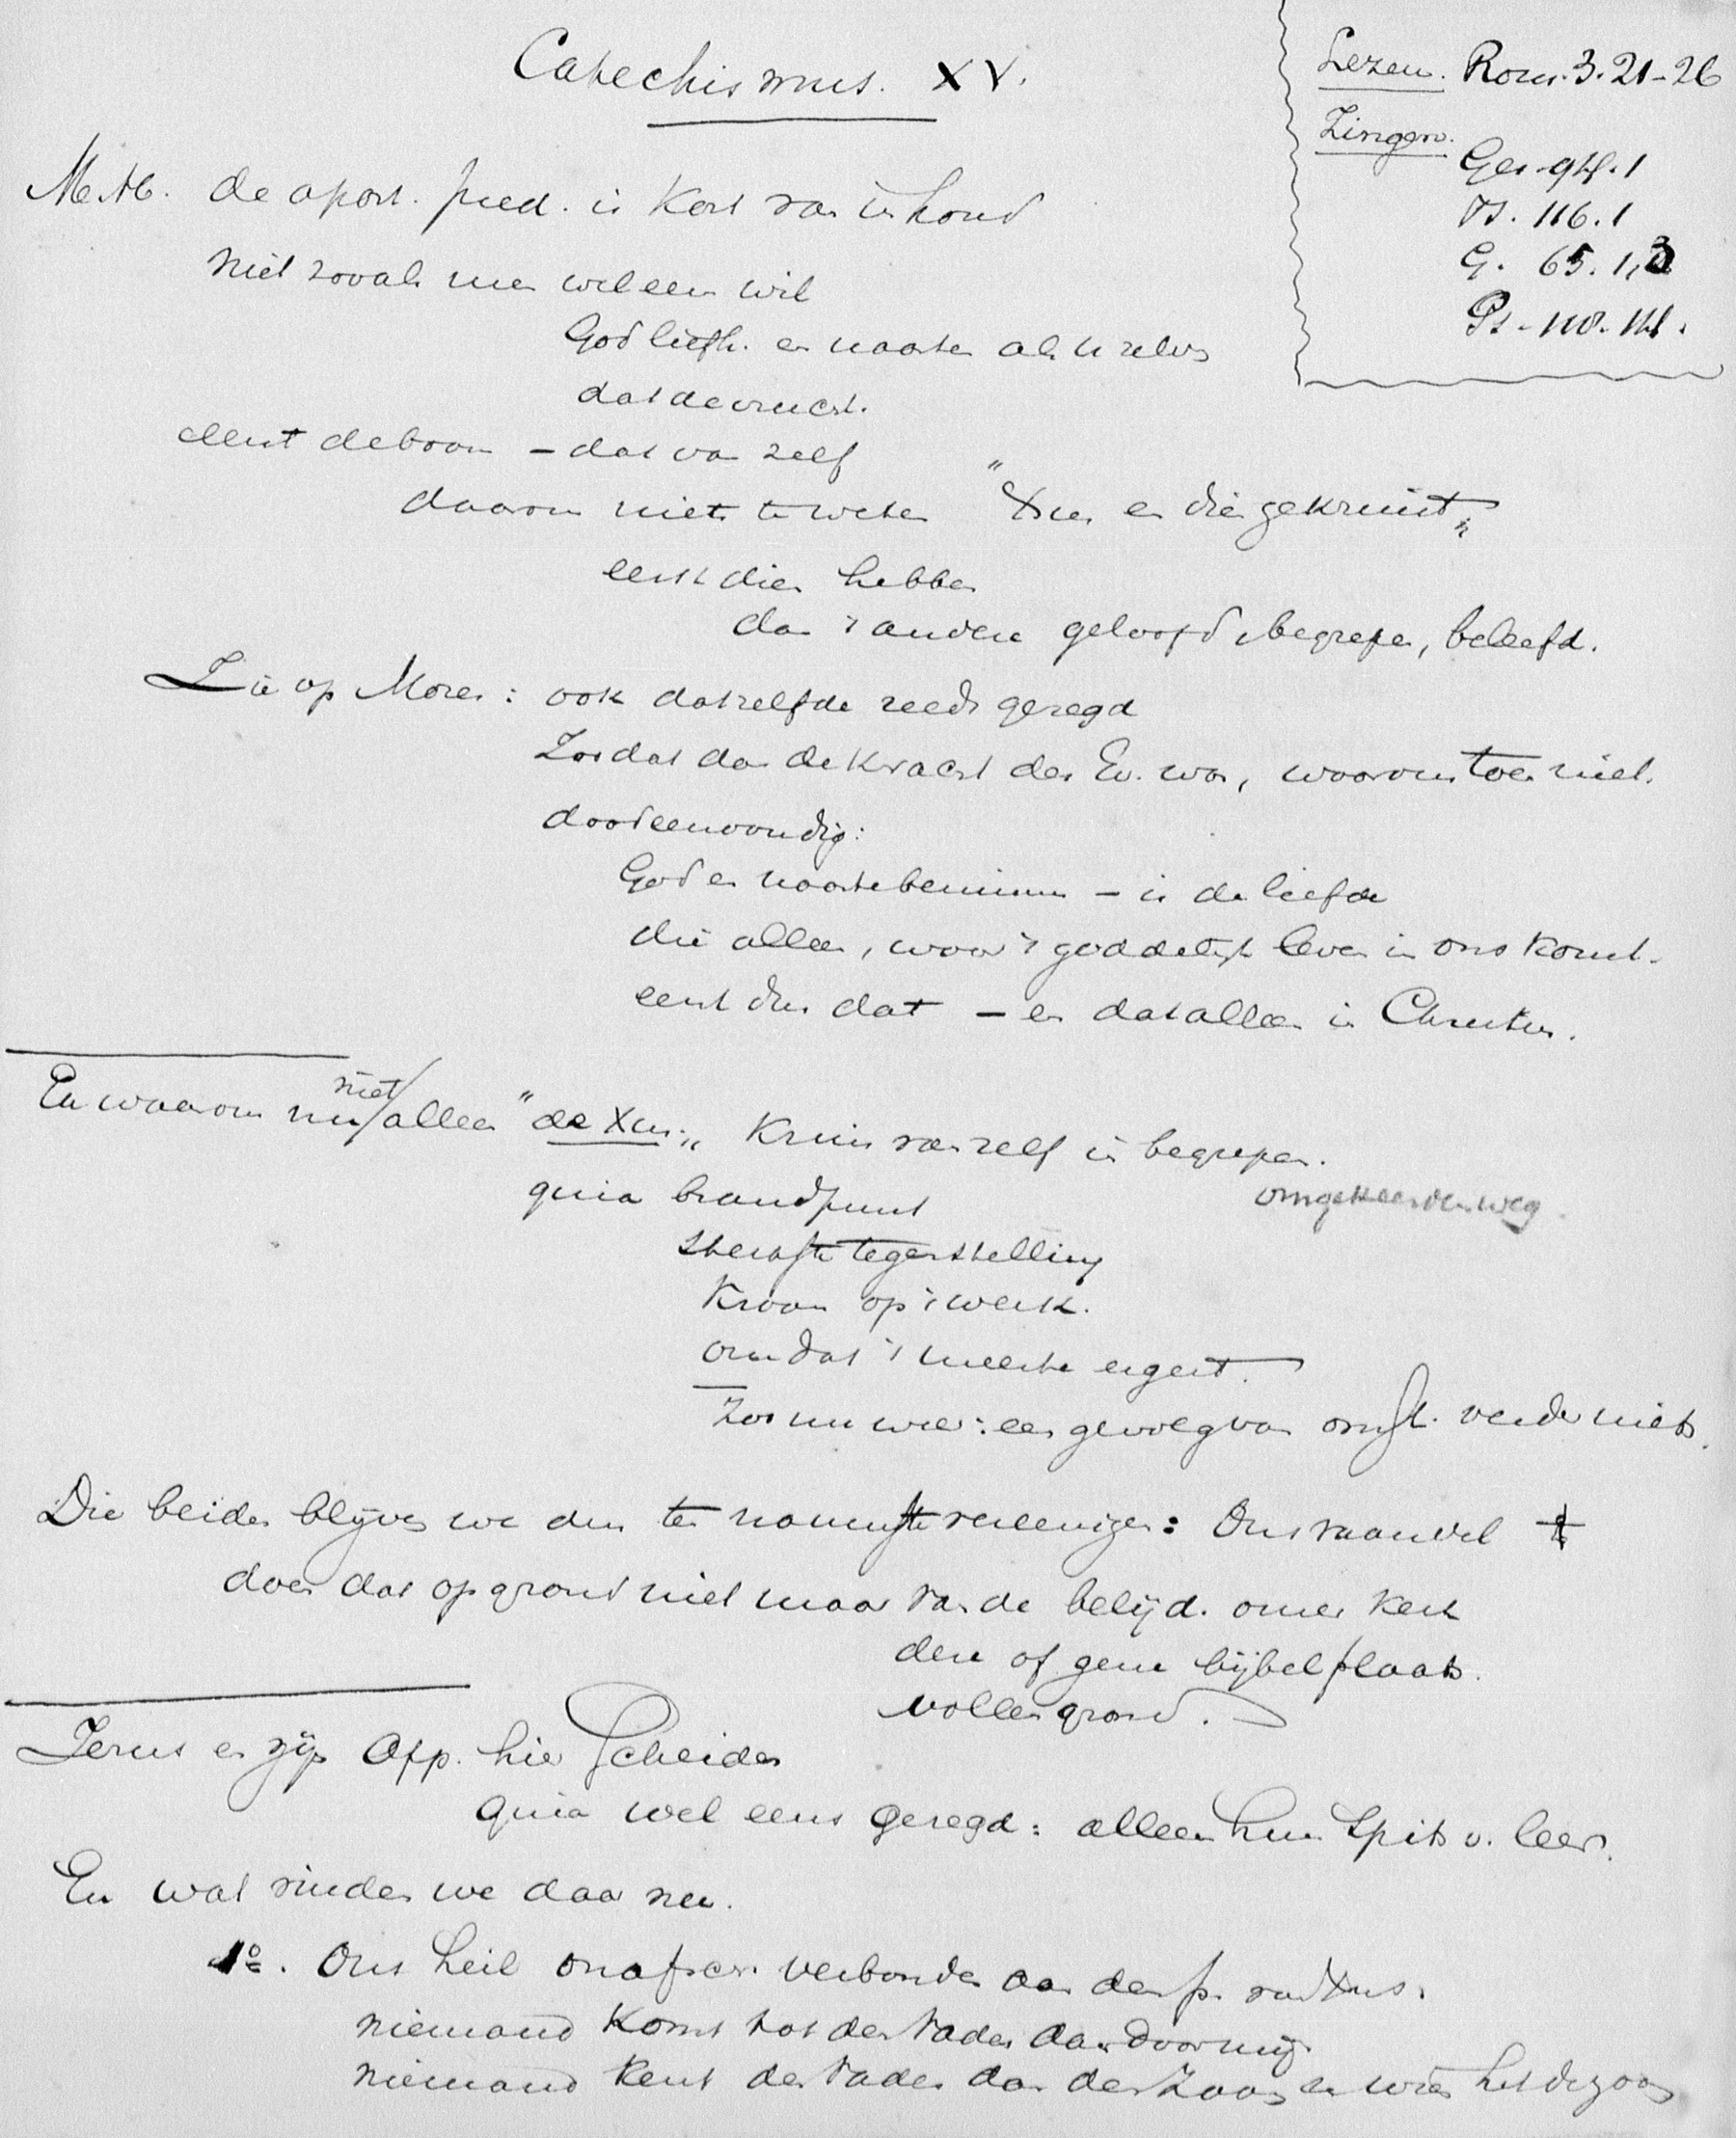 Catechismus. XV.
Lezen. Rom. 3. 21-26
Zingen.
Gez. 94.1
Ps. 116.1
G. 65. 1,3
Ps. 118. 14.
M. H. de apost. pred. is kort van inhoud
niet zooals men wel eens wil
God liefh. en naaste als u zelve
dat de vrucht.
eerst de boom - dat van zelf
daarom niets te weten "Xus en dien gekruist"
eerst dien hebben
dan 't andere geloofd, begrepen, beleefd.
Zie op Mozes: ook datzelfde reeds gezegd
Zoo dat dan de kracht des Ev. was, waarom toen niet.
doodeenvoudig:
God en naaste beminnen - is de liefde
die alleen, waar 't goddelijk leven in ons komt.
eerst dus dat - en dat alleen in Christus.
En waarom nu niet alleen "de Xus" Kruis vanzelf in begrepen.
quia brandpunt
omgekeerden weg.
scherpste tegenstelling
Kroon op 't werk.
omdat 't meeste ergert.
Zoo nu weer: een gevolg van omst. verder niets.
Die beiden blijven we dus ten nauwste vereenigen: Ons vaandel †
doen dat op grond niet maar van de belijd. onzer kerk
deze of gene bijbelplaats.
vollen grond.
Jezus en zijn App. hier scheiden
quia wel eens gezegd: alleen hun spits v. leer.
En wat vinden we daar nu.
1o. Ons heil onafsch. verbonden aan den p. van Xus.
niemand komt tot den Vader dan door mij
niemand kent den Vader dan de Zoon en wien het de zoon